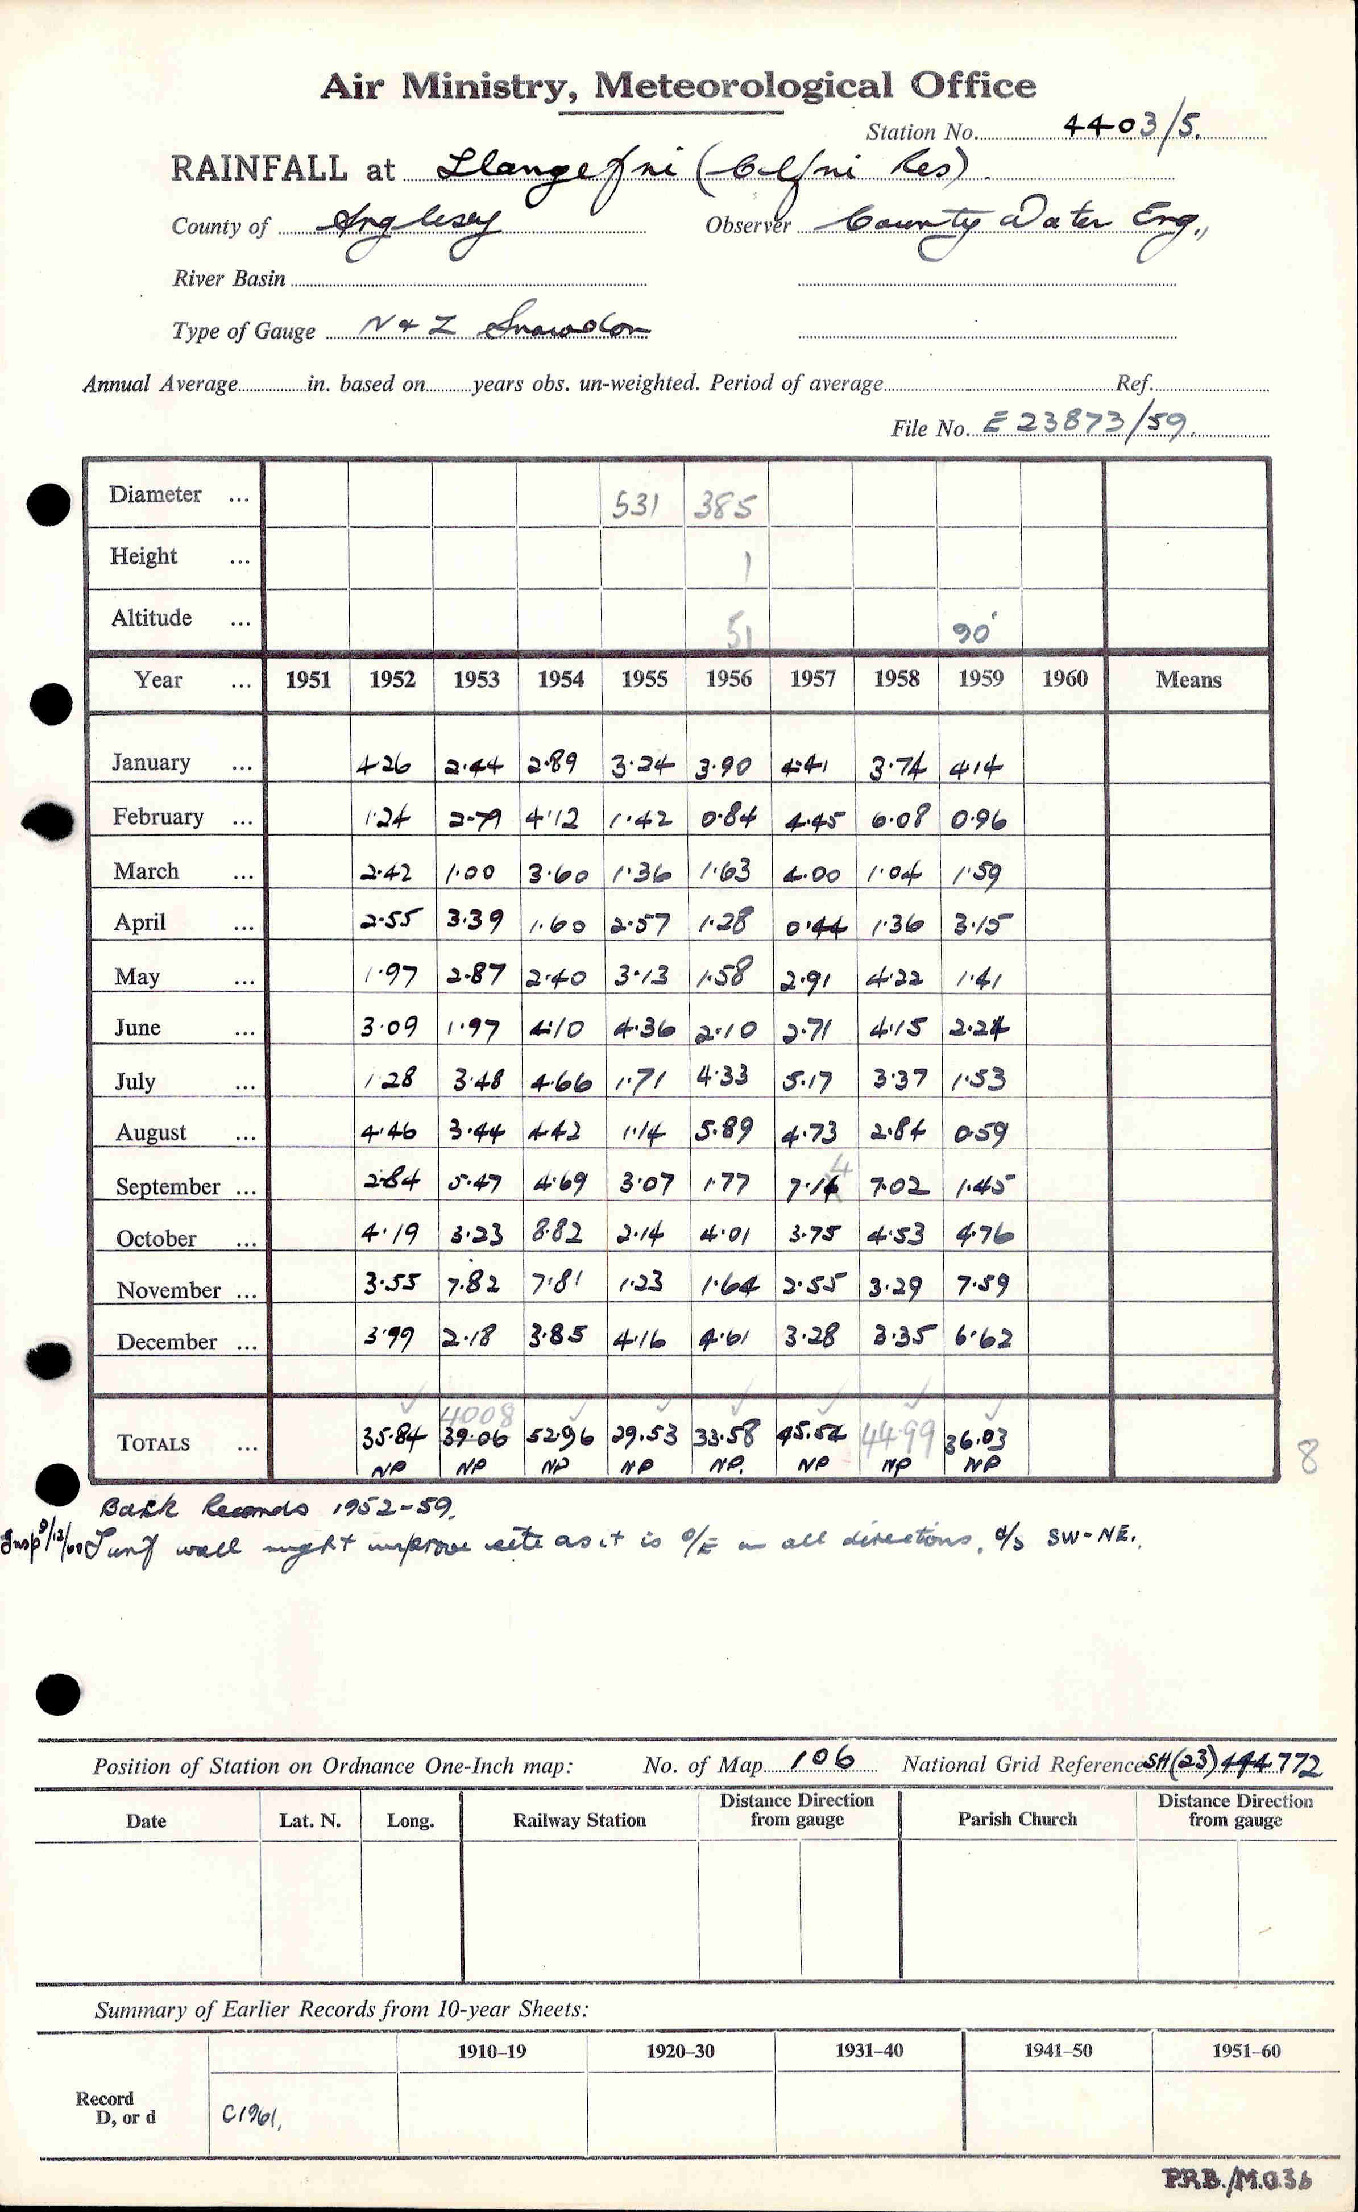 Air Ministry, Meteorological Office
Station No. 4403/5.
RAINFALL at Llangefni (Cefni Res).
County of Anglesey Observer County Water Eng.,
River Basin
Type of Gauge N & Z Snowdon
Annual Average in. based on years obs. un-weighted. Period of average Ref.
File No. E 23873/59.
Diameter ... 531 385
Height ... 1
Altitude ... 51 90'
Year ... 1951 1952 1953 1954 1955 1956 1957 1958 1959 1960 Means
January ... 4.26 2.44 2.89 3.24 3.90 4.41 3.74 4.14
February ... 1.24 2.79 4.12 1.42 0.84 4.45 6.08 0.96
March ... 2.42 1.00 3.60 1.36 1.63 4.00 1.04 1.59
April ... 2.55 3.39 1.60 2.57 1.28 0.44 1.36 3.15
May ... 1.97 2.87 2.40 3.13 1.58 2.91 4.22 1.41
June ... 3.09 1.97 4.10 4.36 2.10 2.71 4.15 2.24
July ... 1.28 3.48 4.66 1.71 4.33 5.17 3.37 1.53
August ... 4.46 3.44 4.42 1.14 5.89 4.73 2.84 0.59
4
September ... 2.84 5.47 4.69 3.07 1.77 7.14 7.02 1.45
October ... 4.19 3.23 8.82 2.14 4.01 3.75 4.53 4.76
November ... 3.55 7.82 7.81 1.23 1.64 2.55 3.29 7.59
December ... 3.99 2.18 3.85 4.16 4.61 3.28 3.35 6.62
4008
TOTALS ... 35.84 39.06 52.96 29.53 33.58 45.54 44.99 36.03
NP NP NP NP NP. NP NP NP
8
Back Records 1952-59.
Insp 9/12/60 Turf wall might improve site as it is o/E in all directions, o/s SW-NE.
Position of Station on Ordnance One-Inch map: No. of Map 106 National Grid Reference SH(23) 444 772
Date Lat. N. Long. Railway Station Distance Direction from gauge Parish Church Distance Direction from gauge
Summary of Earlier Records from 10-year Sheets:
1910–19 1920–30 1931–40 1941–50 1951–60
Record
D, or d C1961,
P.R.B./M.O.36